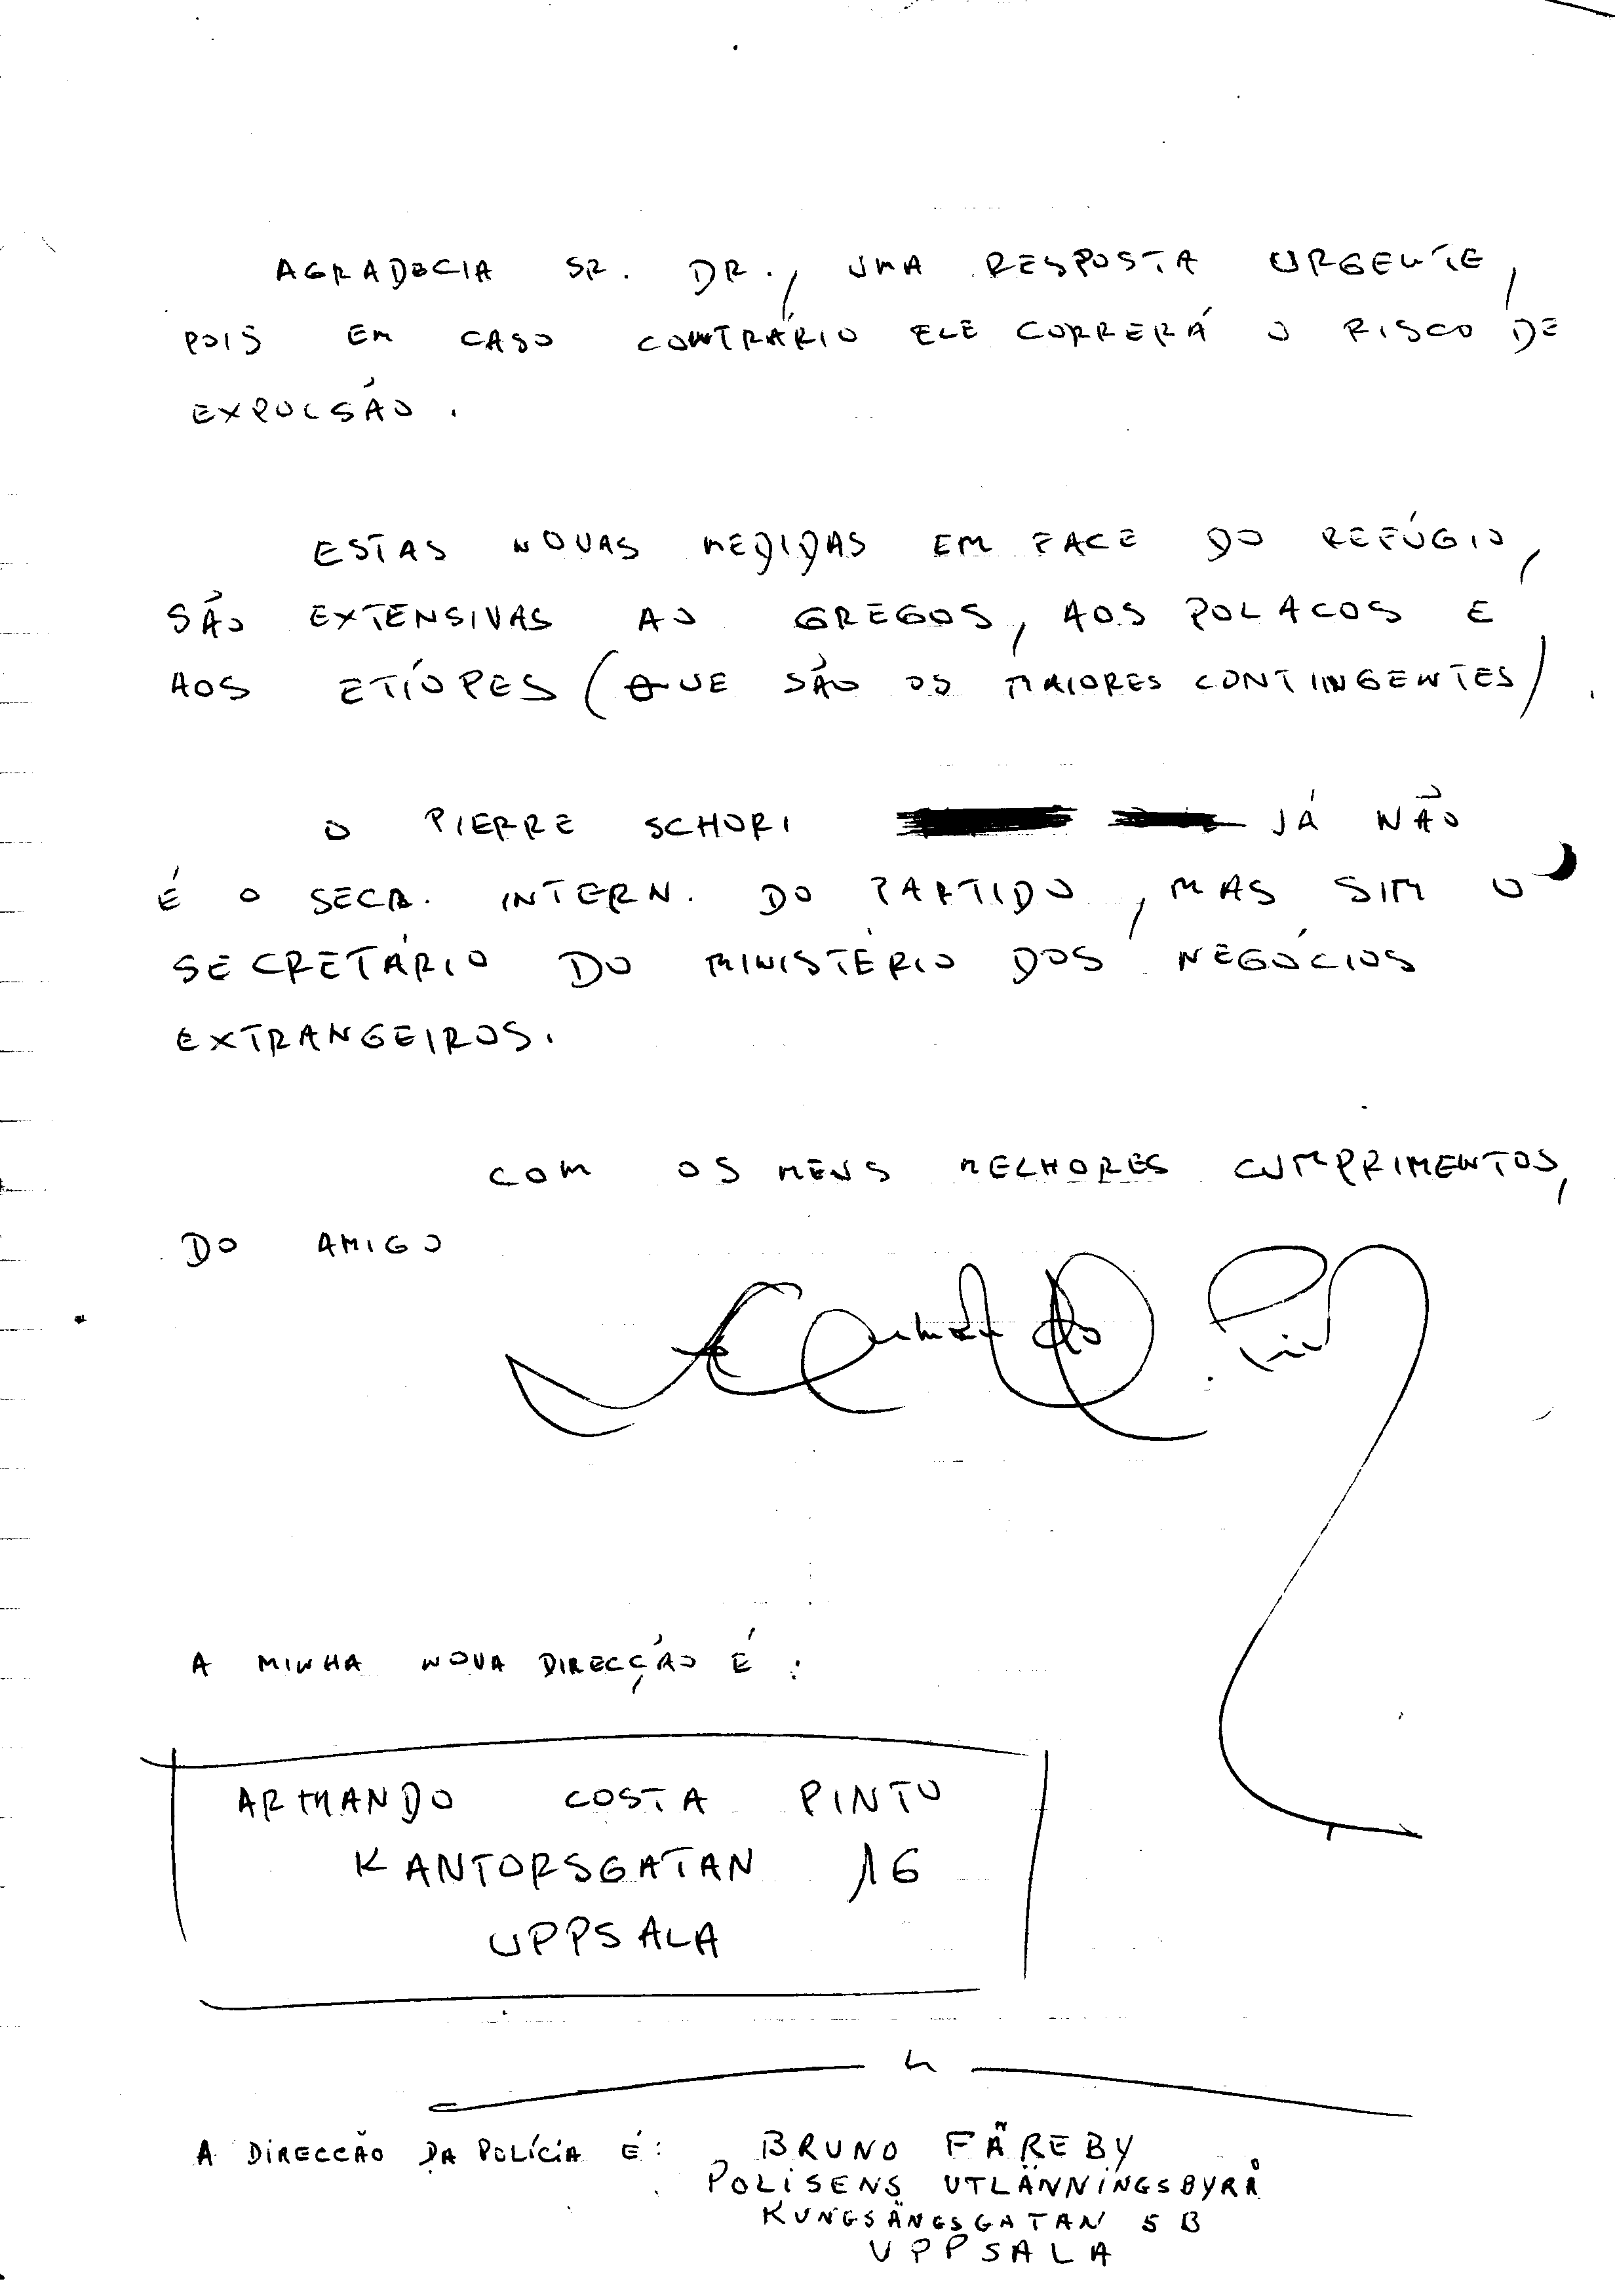 AGRADECIA SR. DR., UMA RESPOSTA URGENTE,
POIS EM CASO CONTRÁRIO ELE CORRERÁ O RISCO DE
EXPULSÃO.
ESTAS NOVAS MEDIDAS EM FACE DO REFÚGIO,
SÃO EXTENSIVAS AO GREGOS, AOS POLACOS E
AOS ETÍOPES (QUE SÃO OS MAIORES CONTINGENTES).
O PIERRE SCHORI JÁ NÃO
É O SECR. INTERN. DO PARTIDO, MAS SIM O
SECRETÁRIO DO MINISTÉRIO DOS NEGÓCIOS
EXTRANGEIROS.
COM OS MEUS MELHORES CUMPRIMENTOS,
DO AMIGO
A MINHA NOVA DIRECÇÃO É:
ARMANDO COSTA PINTO
KANTORSGATAN 16
UPPSALA
A DIRECCÃO DA POLÍCIA É: BRUNO FÄREBY
POLISENS UTLÄNNINGSBYRÅ
KUNGSÄNGSGATAN 5 B
UPPSALA